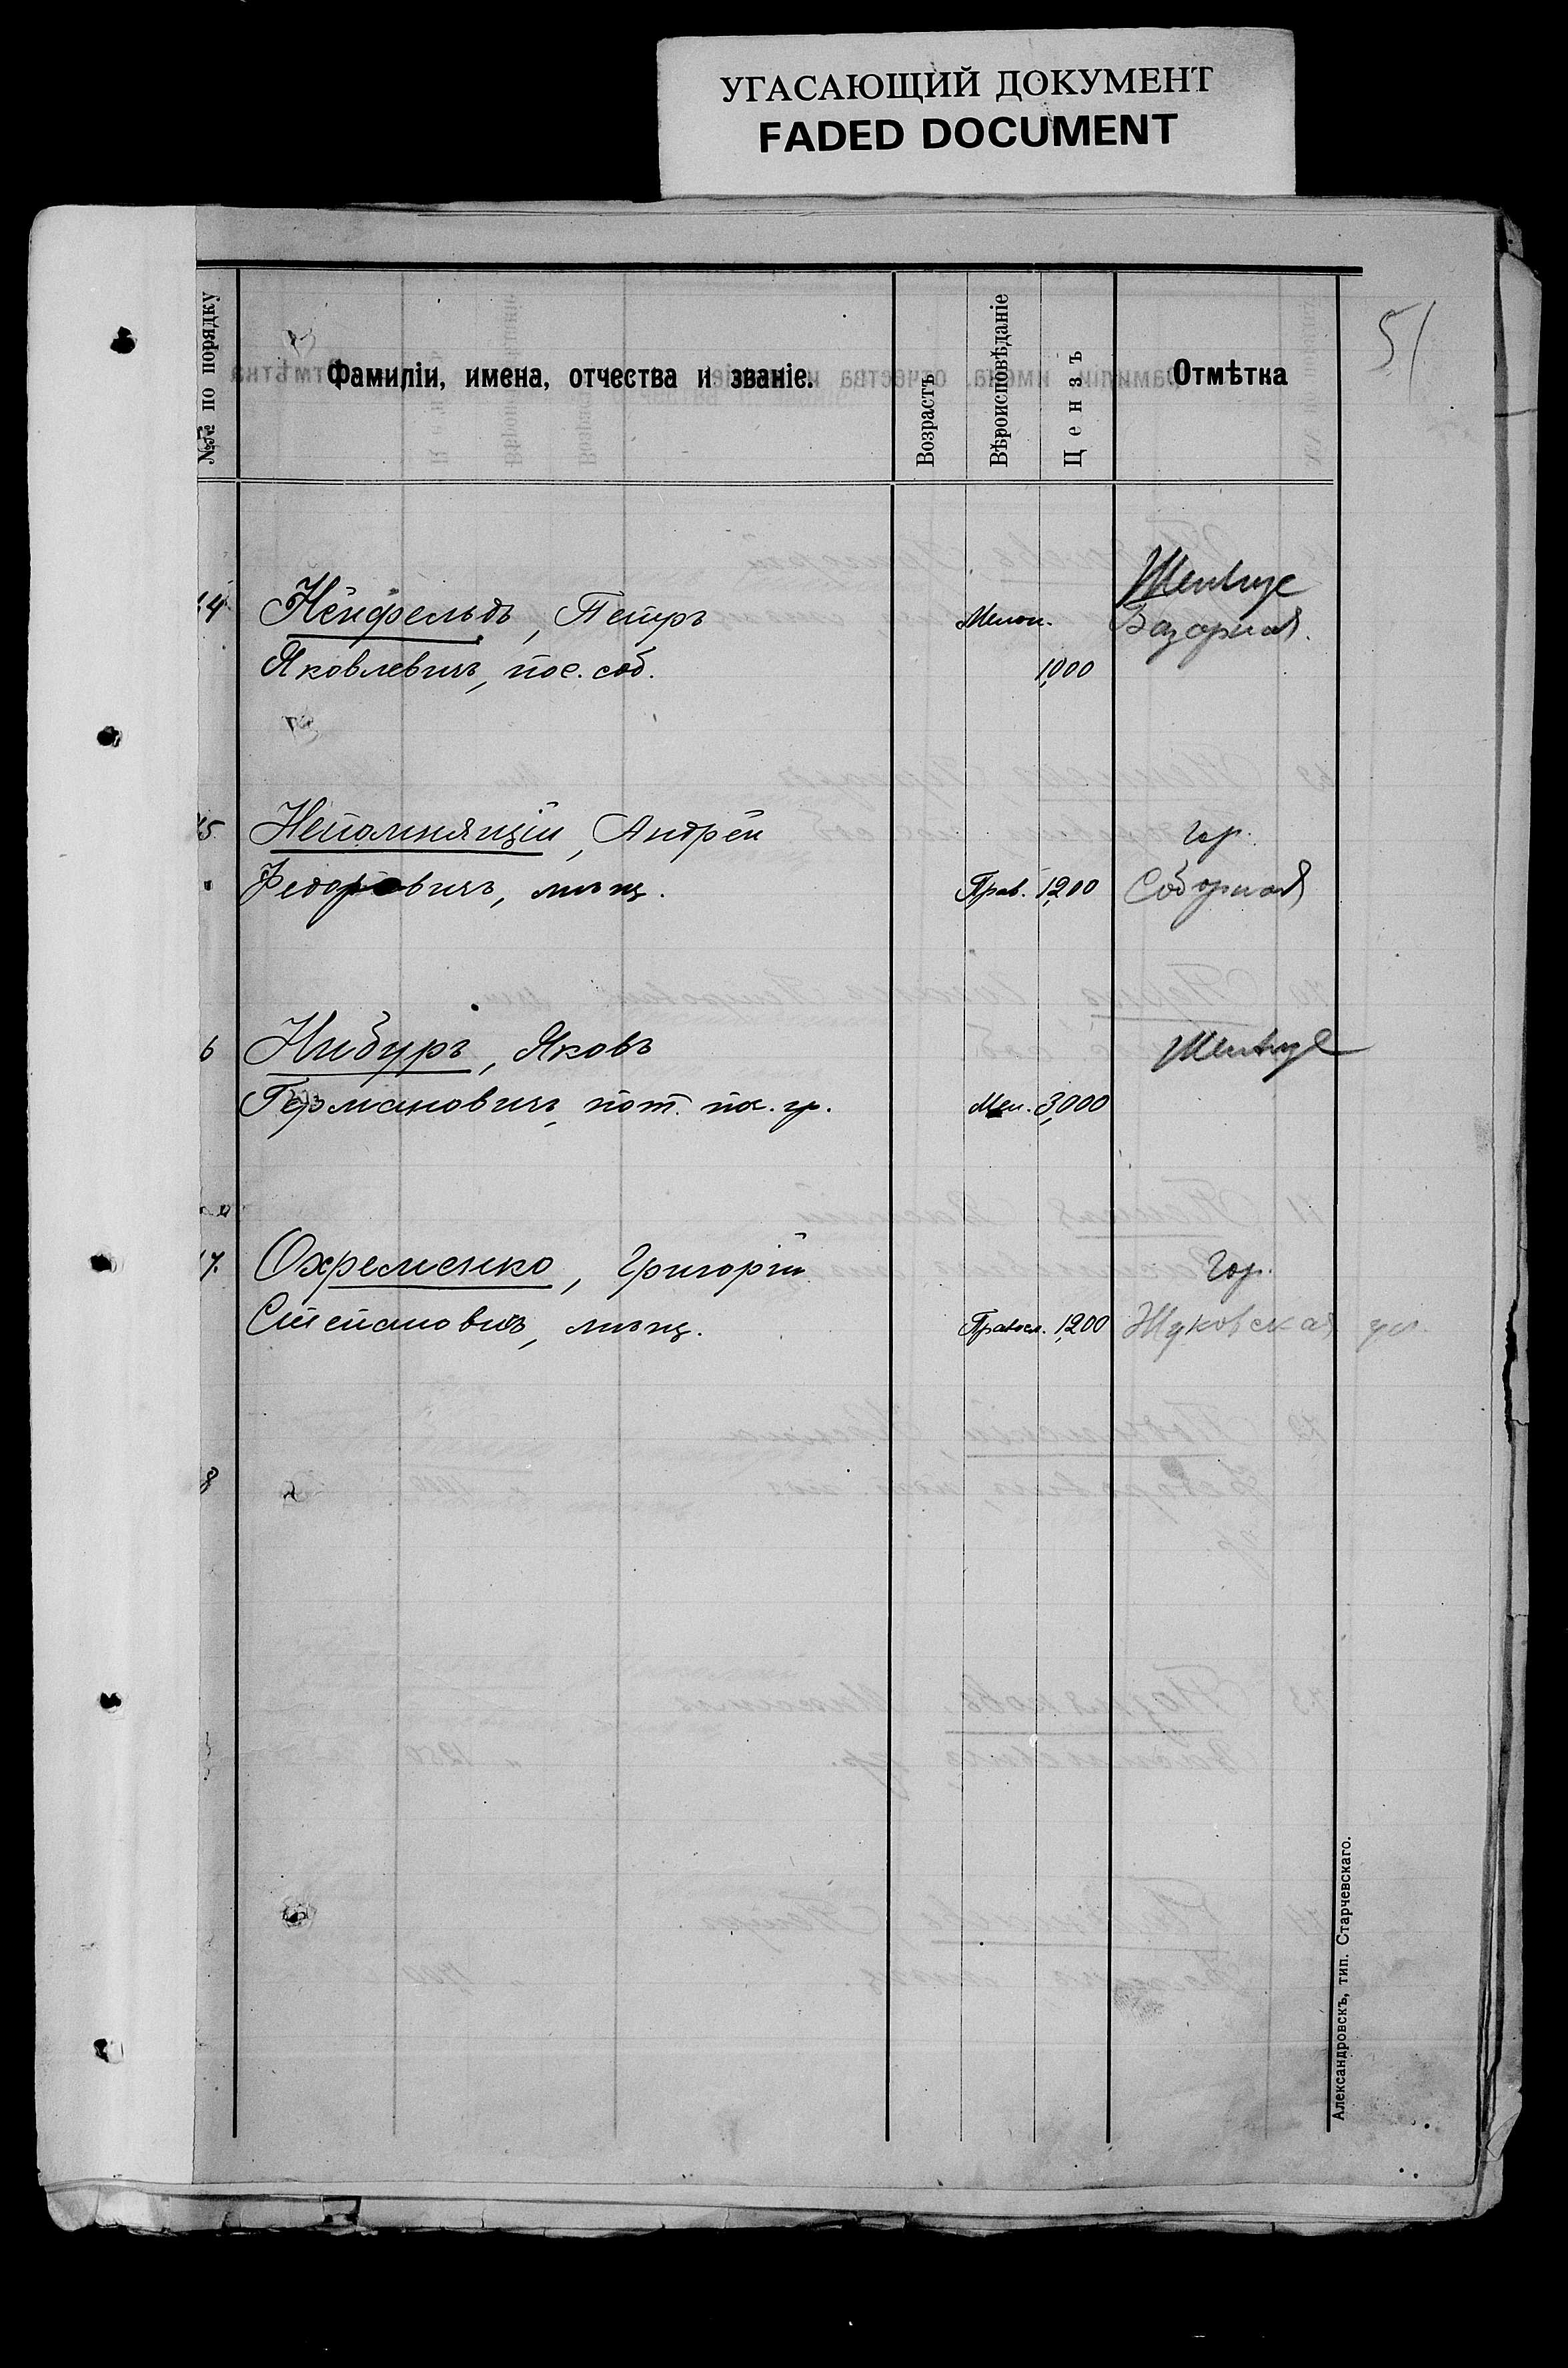 УГАСАЮЩИЙ ДОКУМЕНТ
FADED DOCUMENT
51
№№ по порядку
Фамиліи, имена, отчества и званіе.
Возрастъ
Вѣроисповѣданіе
Цензъ
Отмѣтка
4 Нейфельдъ, Петръ Менон.
Базарная.
Яковлевичъ, пос. соб. 1,000
5 Непомнящій, Андрей Гор.
Федоровичъ, мѣщ. Прав. 1,200 Соборная
6 Нибуръ, Яковъ
Германовичъ, пот. поч. гр. Мен. 3,000
7. Охременко, Григорій Гор.
Степановичъ, мѣщ. Правосл. 1,200 Жуковская ул.
8
Александровскъ, тип. Старчевскаго.